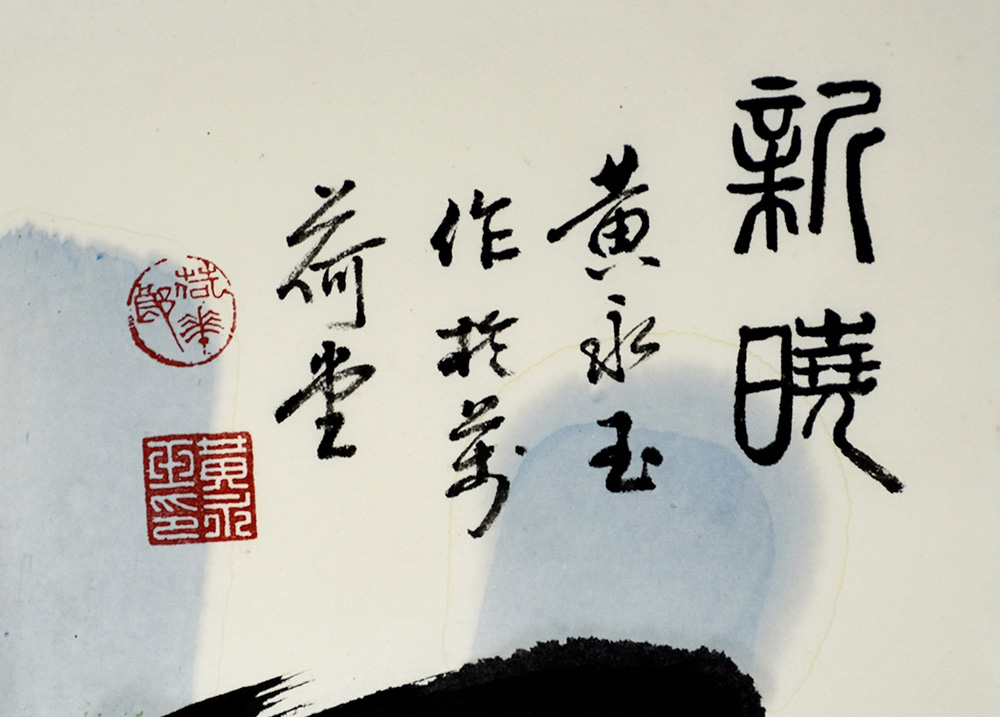 新曉
黄永玉
作於萬
荷堂
黃永玉印